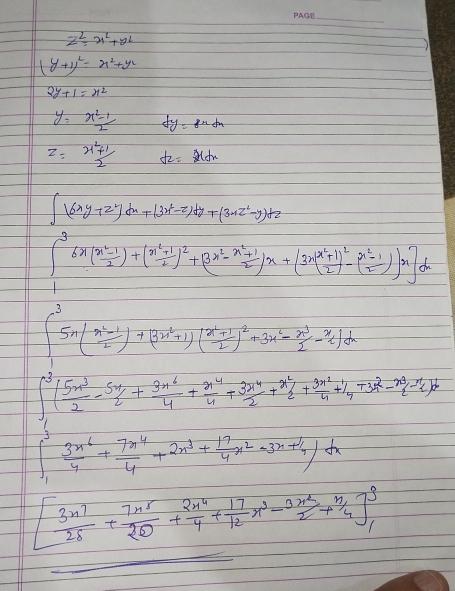 PAGE
z² = x² + y²
(y+1)² = x² + y²
2y+1 = x²
y = x²-1/2 dy = x dx
z = x²+1/2 dz = x dx
∫ (6xy + z²) dx + (3x² - z) dy + (3xz² - y) dz
∫₁³ 6x(x²-1/2) + (x²+1/2)² + (3x² - x²+1/2)x + (3x(x²+1/2)² - (x²-1/2))x] dx
∫₁³ 5x(x²-1/2) + (3x²+1)(x²+1/2)² + 3x² - x³/2 - x/2] dx
∫₁³ (5x³/2 - 5x/2 + 3x⁶/4 + x⁴/4 + 3x⁴/2 + x²/2 + 3x²/4 + 1/4 + 3x² - x³/2 - x/2) dx
∫₁³ 3x⁶/4 + 7x⁴/4 + 2x³ + 17/4 x² - 3x + 1/4) dx
[3x7/28 + 7x⁵/20 + 2x⁴/4 + 17/12 x³ - 3x²/2 + x/4]₁³